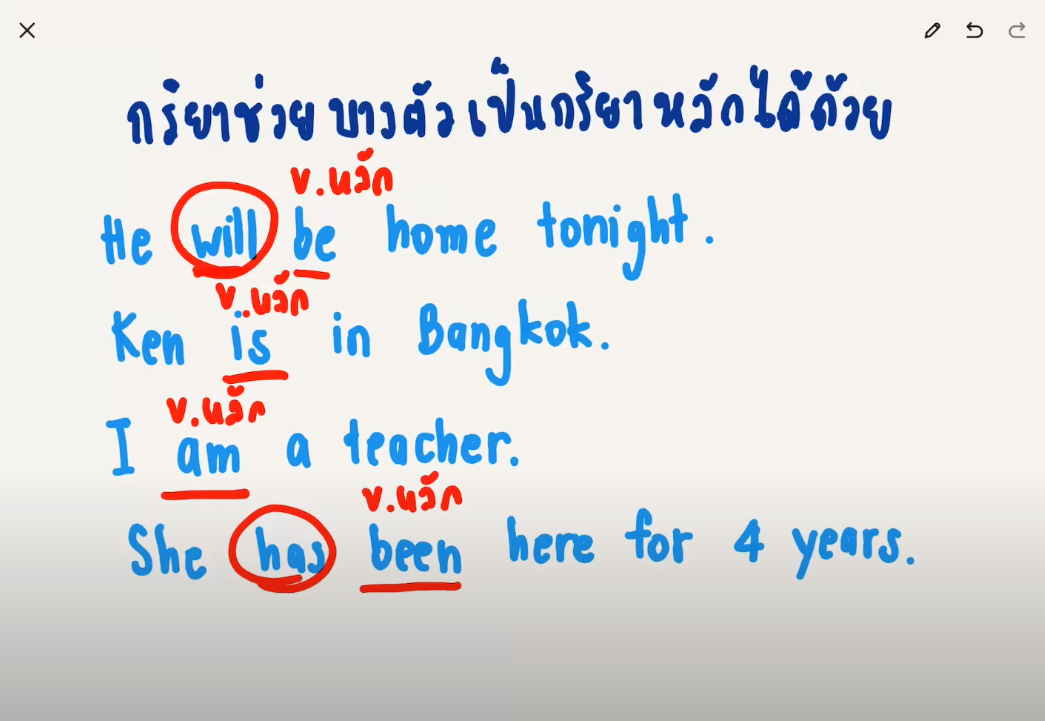 กริยาช่วย บางตัว เป็นกริยา หลักได้ด้วย
v.หลัก
He will be home tonight.
v.หลัก
Ken is in Bangkok.
v.หลัก
I am a teacher.
v.หลัก
She has been here for 4 years.